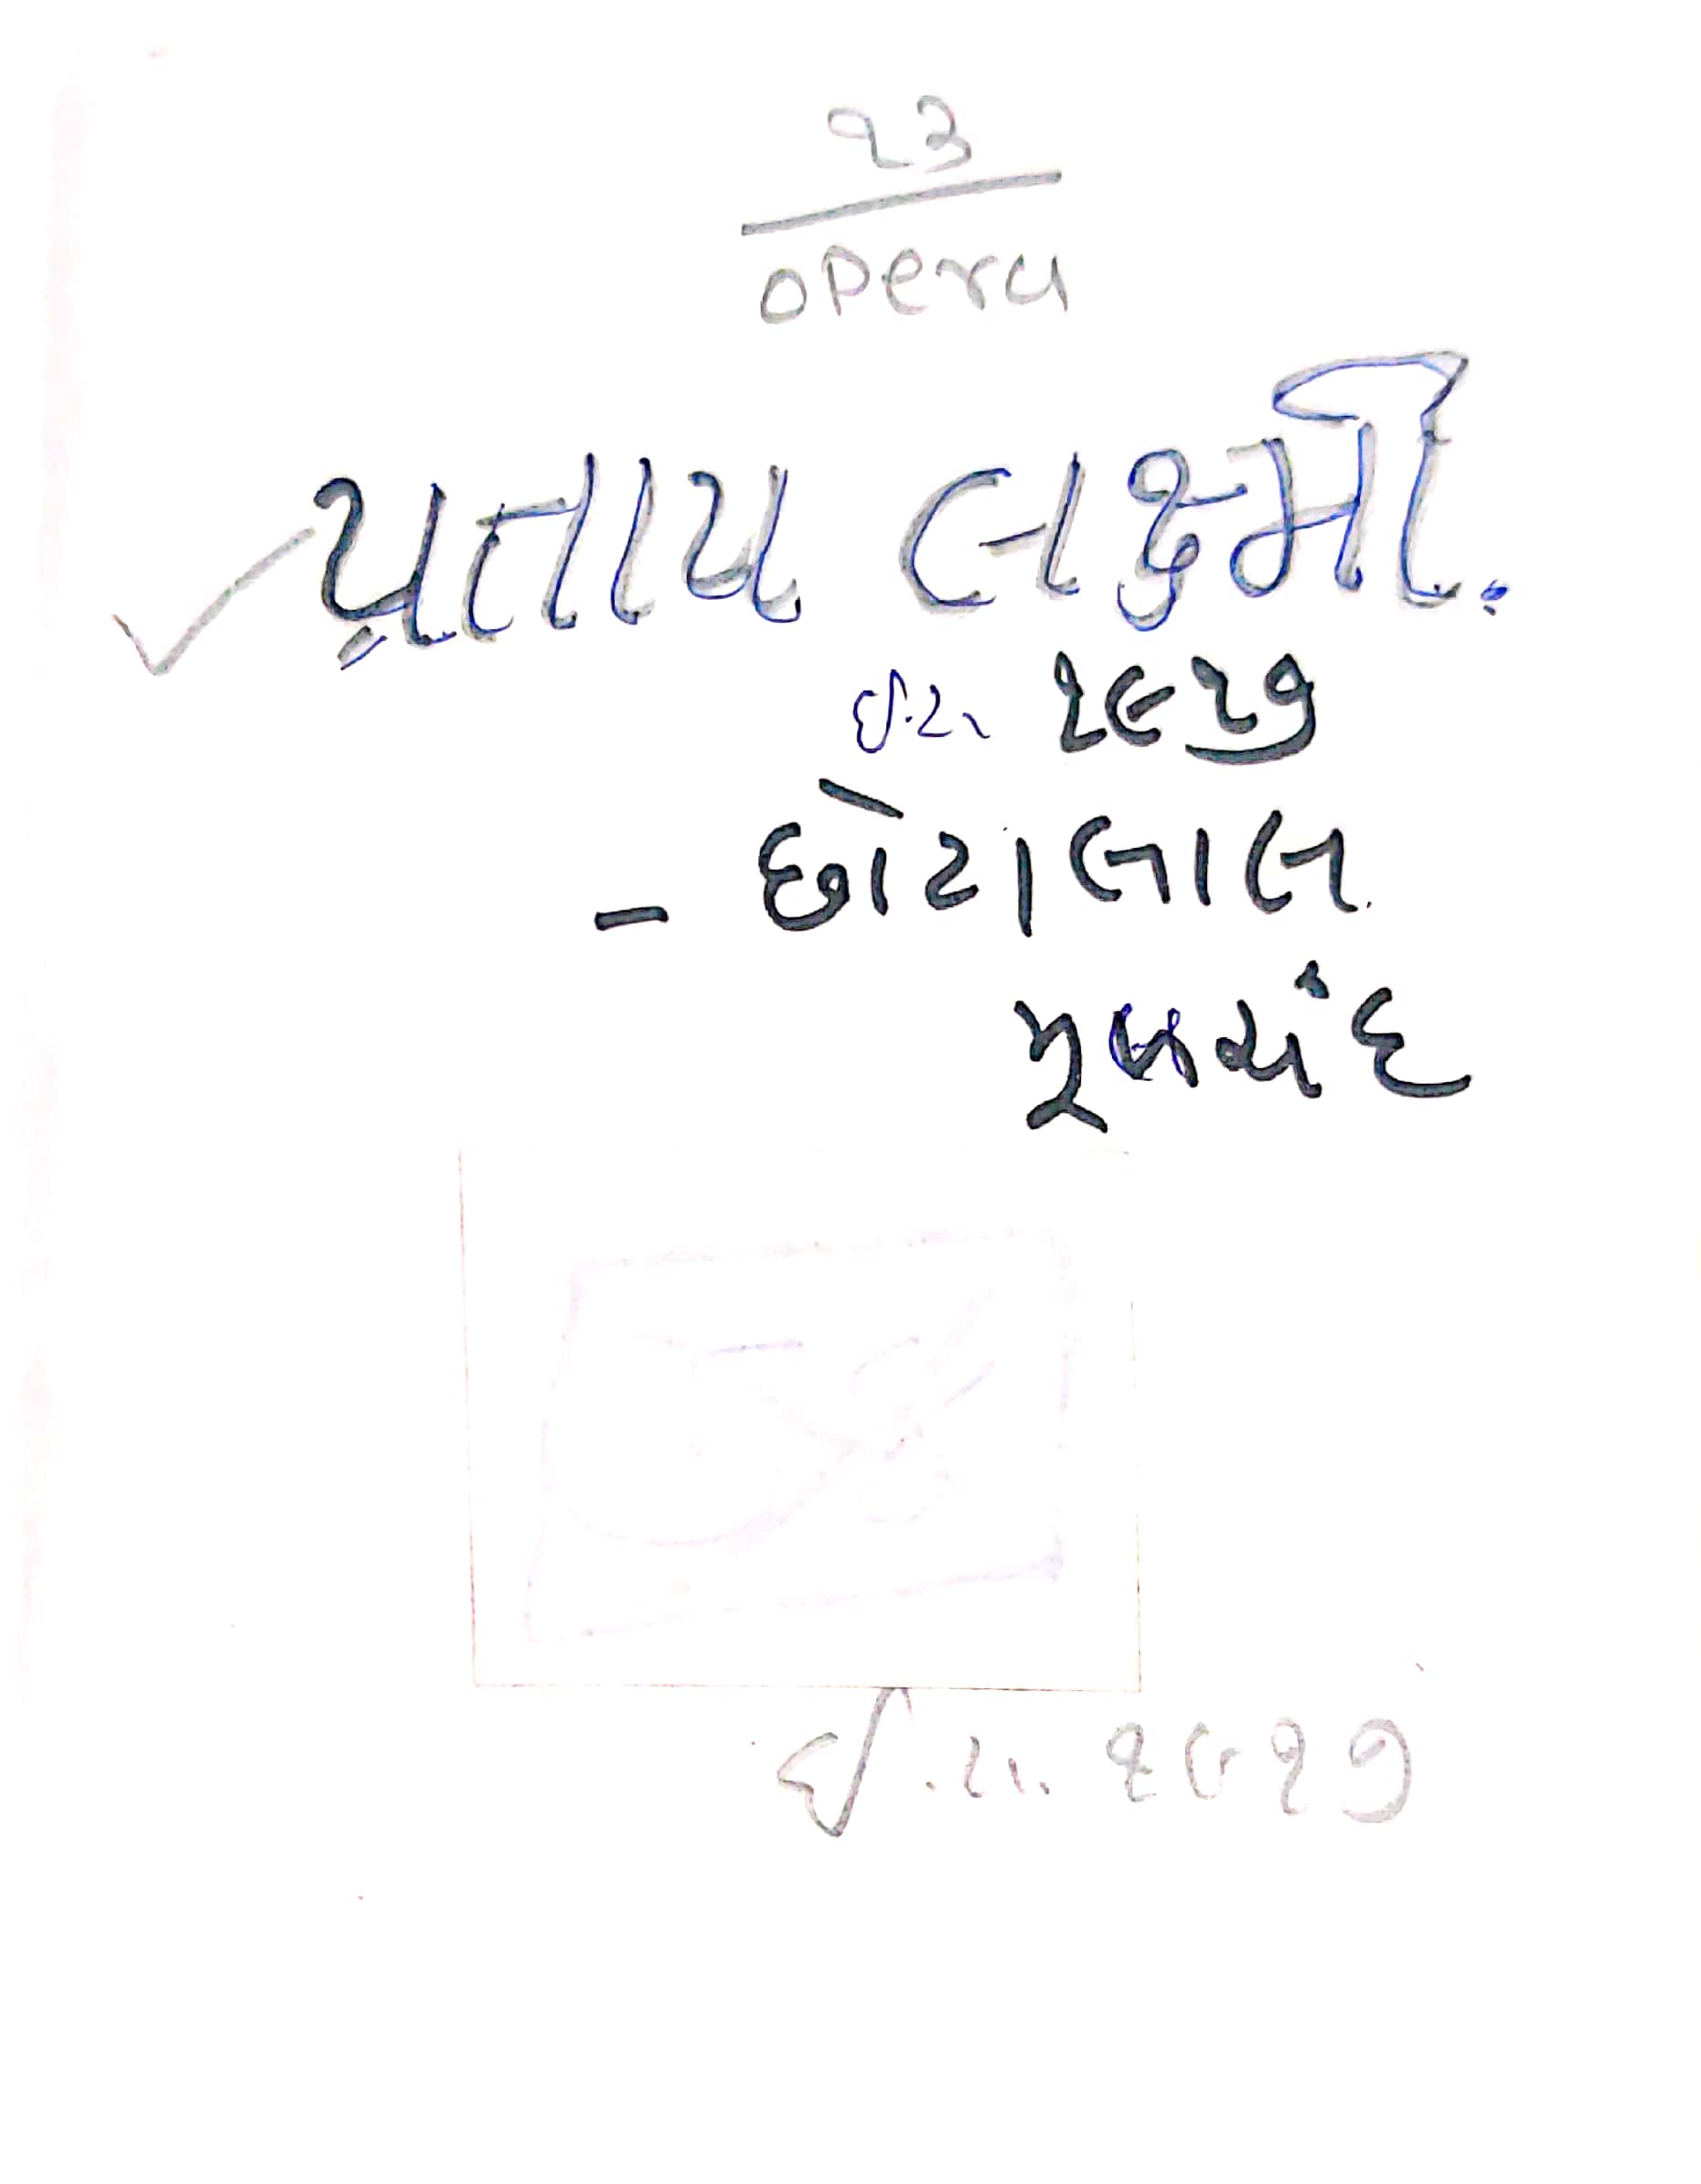 ૨૩
opera
પ્રતાપ લક્ષ્મી.
ઈ.સ. ૧૯૧૭
- છોટાલાલ
મૂલચંદ
ઈ.સ. ૧૯૧૭